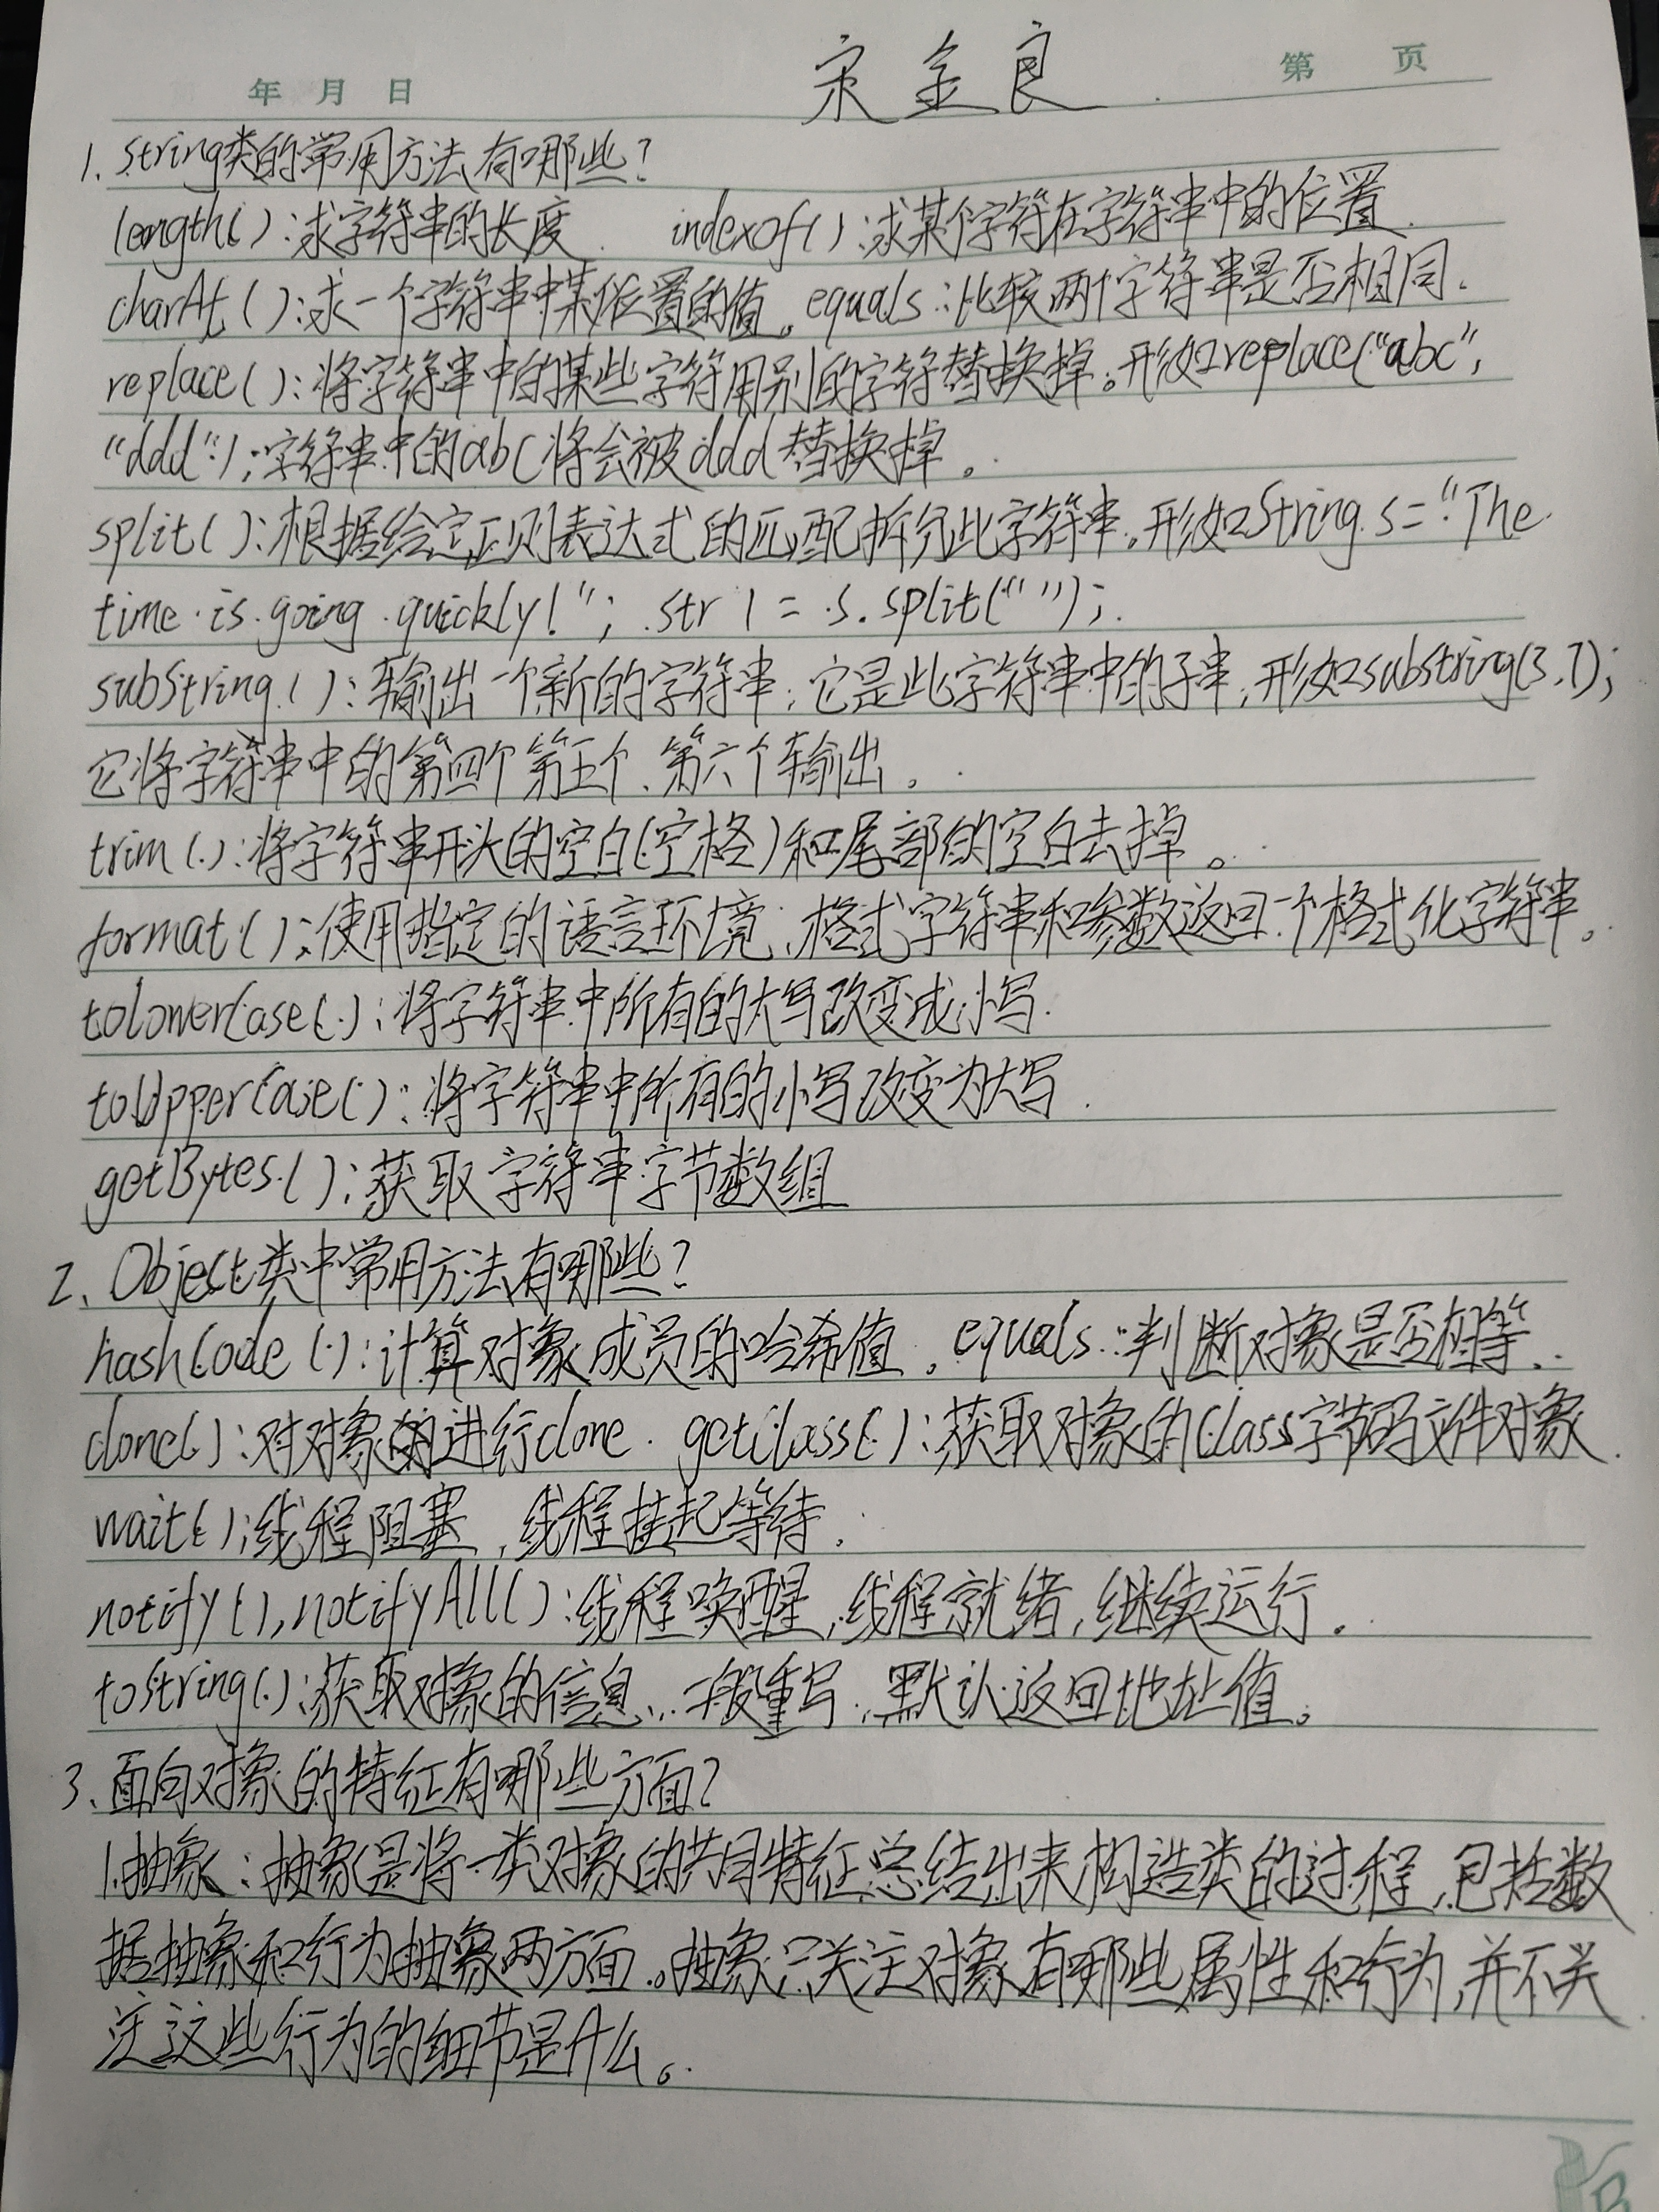 宋金良
年 月 日 第 页
1、string类的常用方法有哪些？
length()：求字符串的长度. indexof()：求某个字符在字符串中的位置.
charAt()：求一个字符串中某位置的值。equals：比较两个字符串是否相同.
replace()：将字符串中的某些字符用别的字符替换掉。形如replace("abc",
"ddd")；字符串中的abc将会被ddd替换掉。
split()：根据给定正则表达式的匹配拆分此字符串。形如String s="The
time is going quickly!"; str1=s.split(" ");
substring()：输出一个新的字符串，它是此字符串中的子串，形如substring(3,7);
它将字符串中的第四个第五个、第六个输出。
trim()：将字符串开头的空白(空格)和尾部的空白去掉。
format()：使用指定的语言环境、格式字符串和参数返回一个格式化字符串。
toLowerCase()：将字符串中所有的大写改变成小写.
toUpperCase()：将字符串中所有的小写改变为大写.
getBytes()：获取字符串字节数组
2、Object类中常用方法有哪些？
hashCode()：计算对象成员的哈希值。equals：判断对象是否相等.
clone()：对对象的进行clone. getClass()：获取对象的Class字节码文件对象.
wait()：线程阻塞，线程挂起等待.
notify(),notifyAll()：线程唤醒，线程就绪，继续运行。
toString()：获取对象的信息，一般重写，默认返回地址值。
3、面向对象的特征有哪些方面？
1.抽象：抽象是将一类对象的共同特征总结出来构造类的过程，包括数
据抽象和行为抽象两方面。抽象只关注对象有哪些属性和行为，并不关
注这些行为的细节是什么。